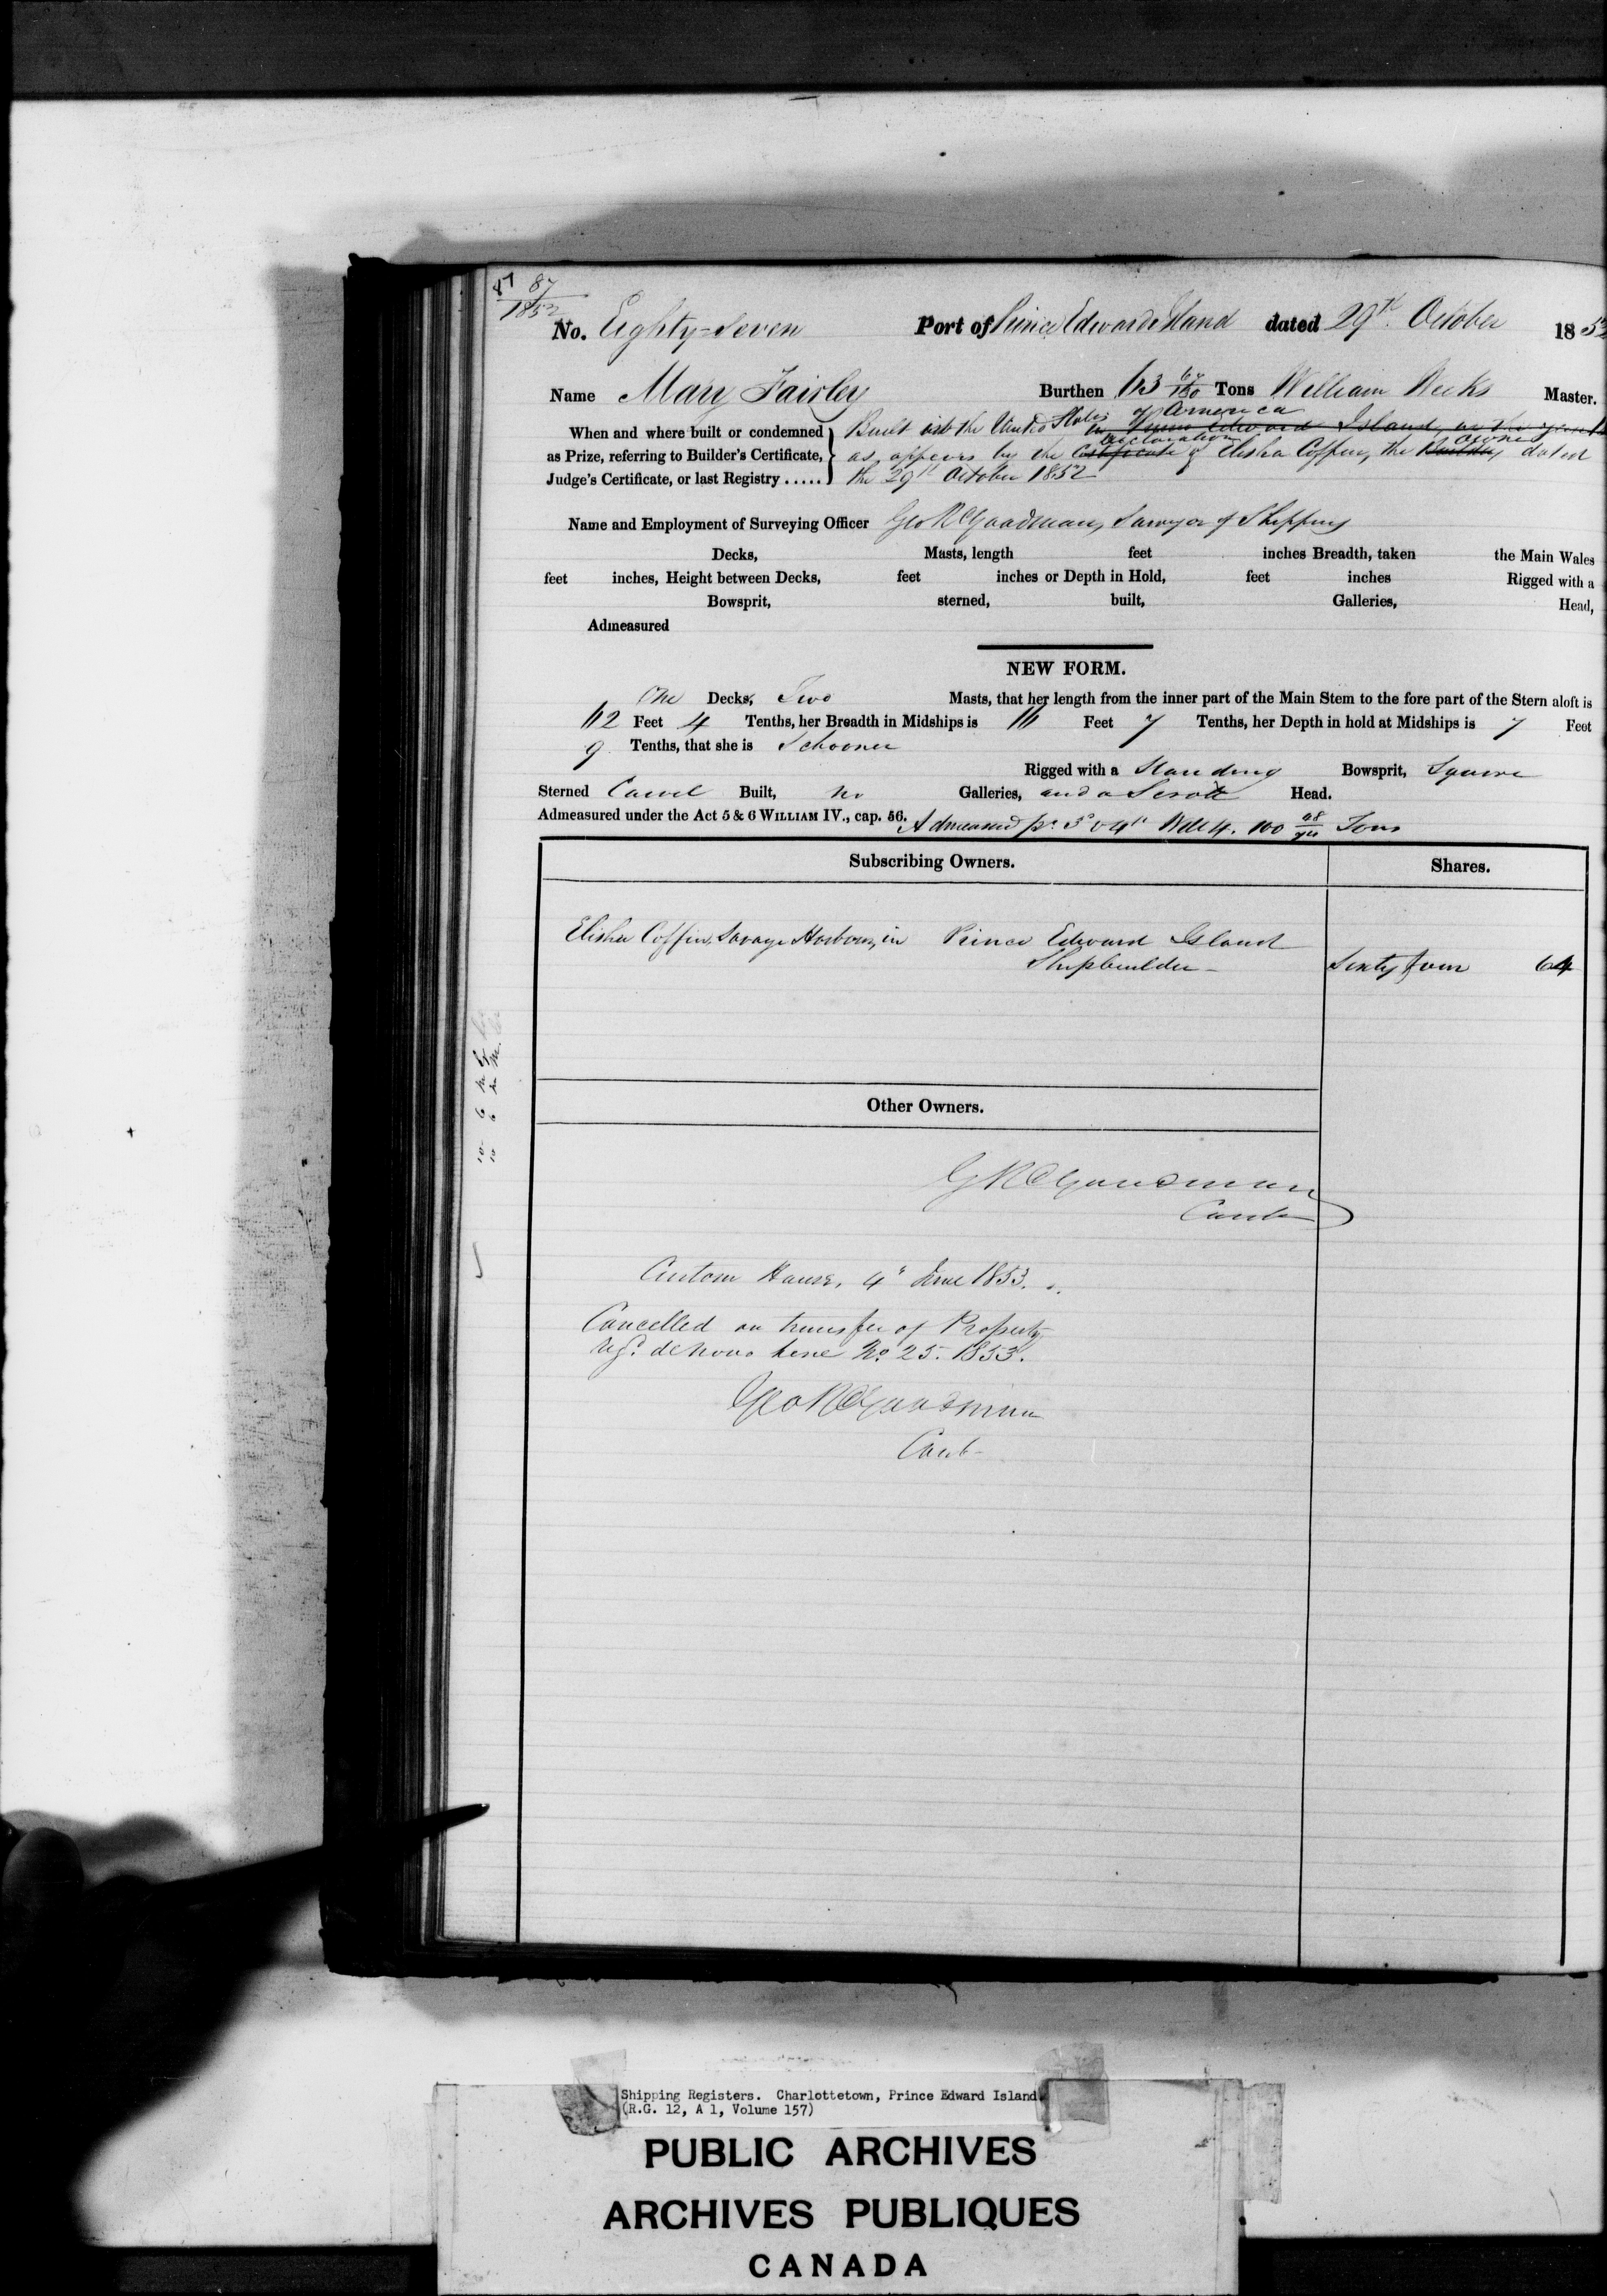 87 87
1852
No. Eighty=Seven Port of Prince Edward Island dated 29th October 1852
Name Mary Fairley Burthen 63 67/100 Tons William Weeks Master.
of America
When and where built or condemned Built in the United States in Prince Edward Island, in the year
declaration owner
as Prize, referring to Builder's Certificate, as appears by the Certificate of Elisha Coffin, the Builder, dated
Judge's Certificate, or last Registry ..... the 29th October 1852
Name and Employment of Surveying Officer Geo R Goodman, Surveyor of Shipping
Decks, Masts, length feet inches Breadth, taken the Main Wales
feet inches, Height between Decks, feet inches or Depth in Hold, feet inches Rigged with a
Bowsprit, sterned, built, Galleries, Head,
Admeasured
NEW FORM.
One Decks, Two Masts, that her length from the inner part of the Main Stem to the fore part of the Stern aloft is
62 Feet 4 Tenths, her Breadth in Midships is 16 Feet 7 Tenths, her Depth in hold at Midships is 7 Feet
9 Tenths, that she is Schooner
Rigged with a Standing Bowsprit, Square
Sterned Carvel Built, no Galleries, and a Scroll Head.
Admeasured under the Act 5 & 6 WILLIAM IV., cap. 56. Admeasured Tons
Subscribing Owners. Shares.
Elisha Coffin, Savage Harbour, in Prince Edward Island
Shipbuilder - Sixty four 64
Other Owners.
G R Goodman
Cont
Custom House, 4" June 1853.
Cancelled on transfer of Property
Regd. de Novo here No. 25. 1853.
Geo R Goodman
Cont
Shipping Registers. Charlottetown, Prince Edward Island
(R.G. 12, A 1, Volume 157)
PUBLIC ARCHIVES
ARCHIVES PUBLIQUES
CANADA